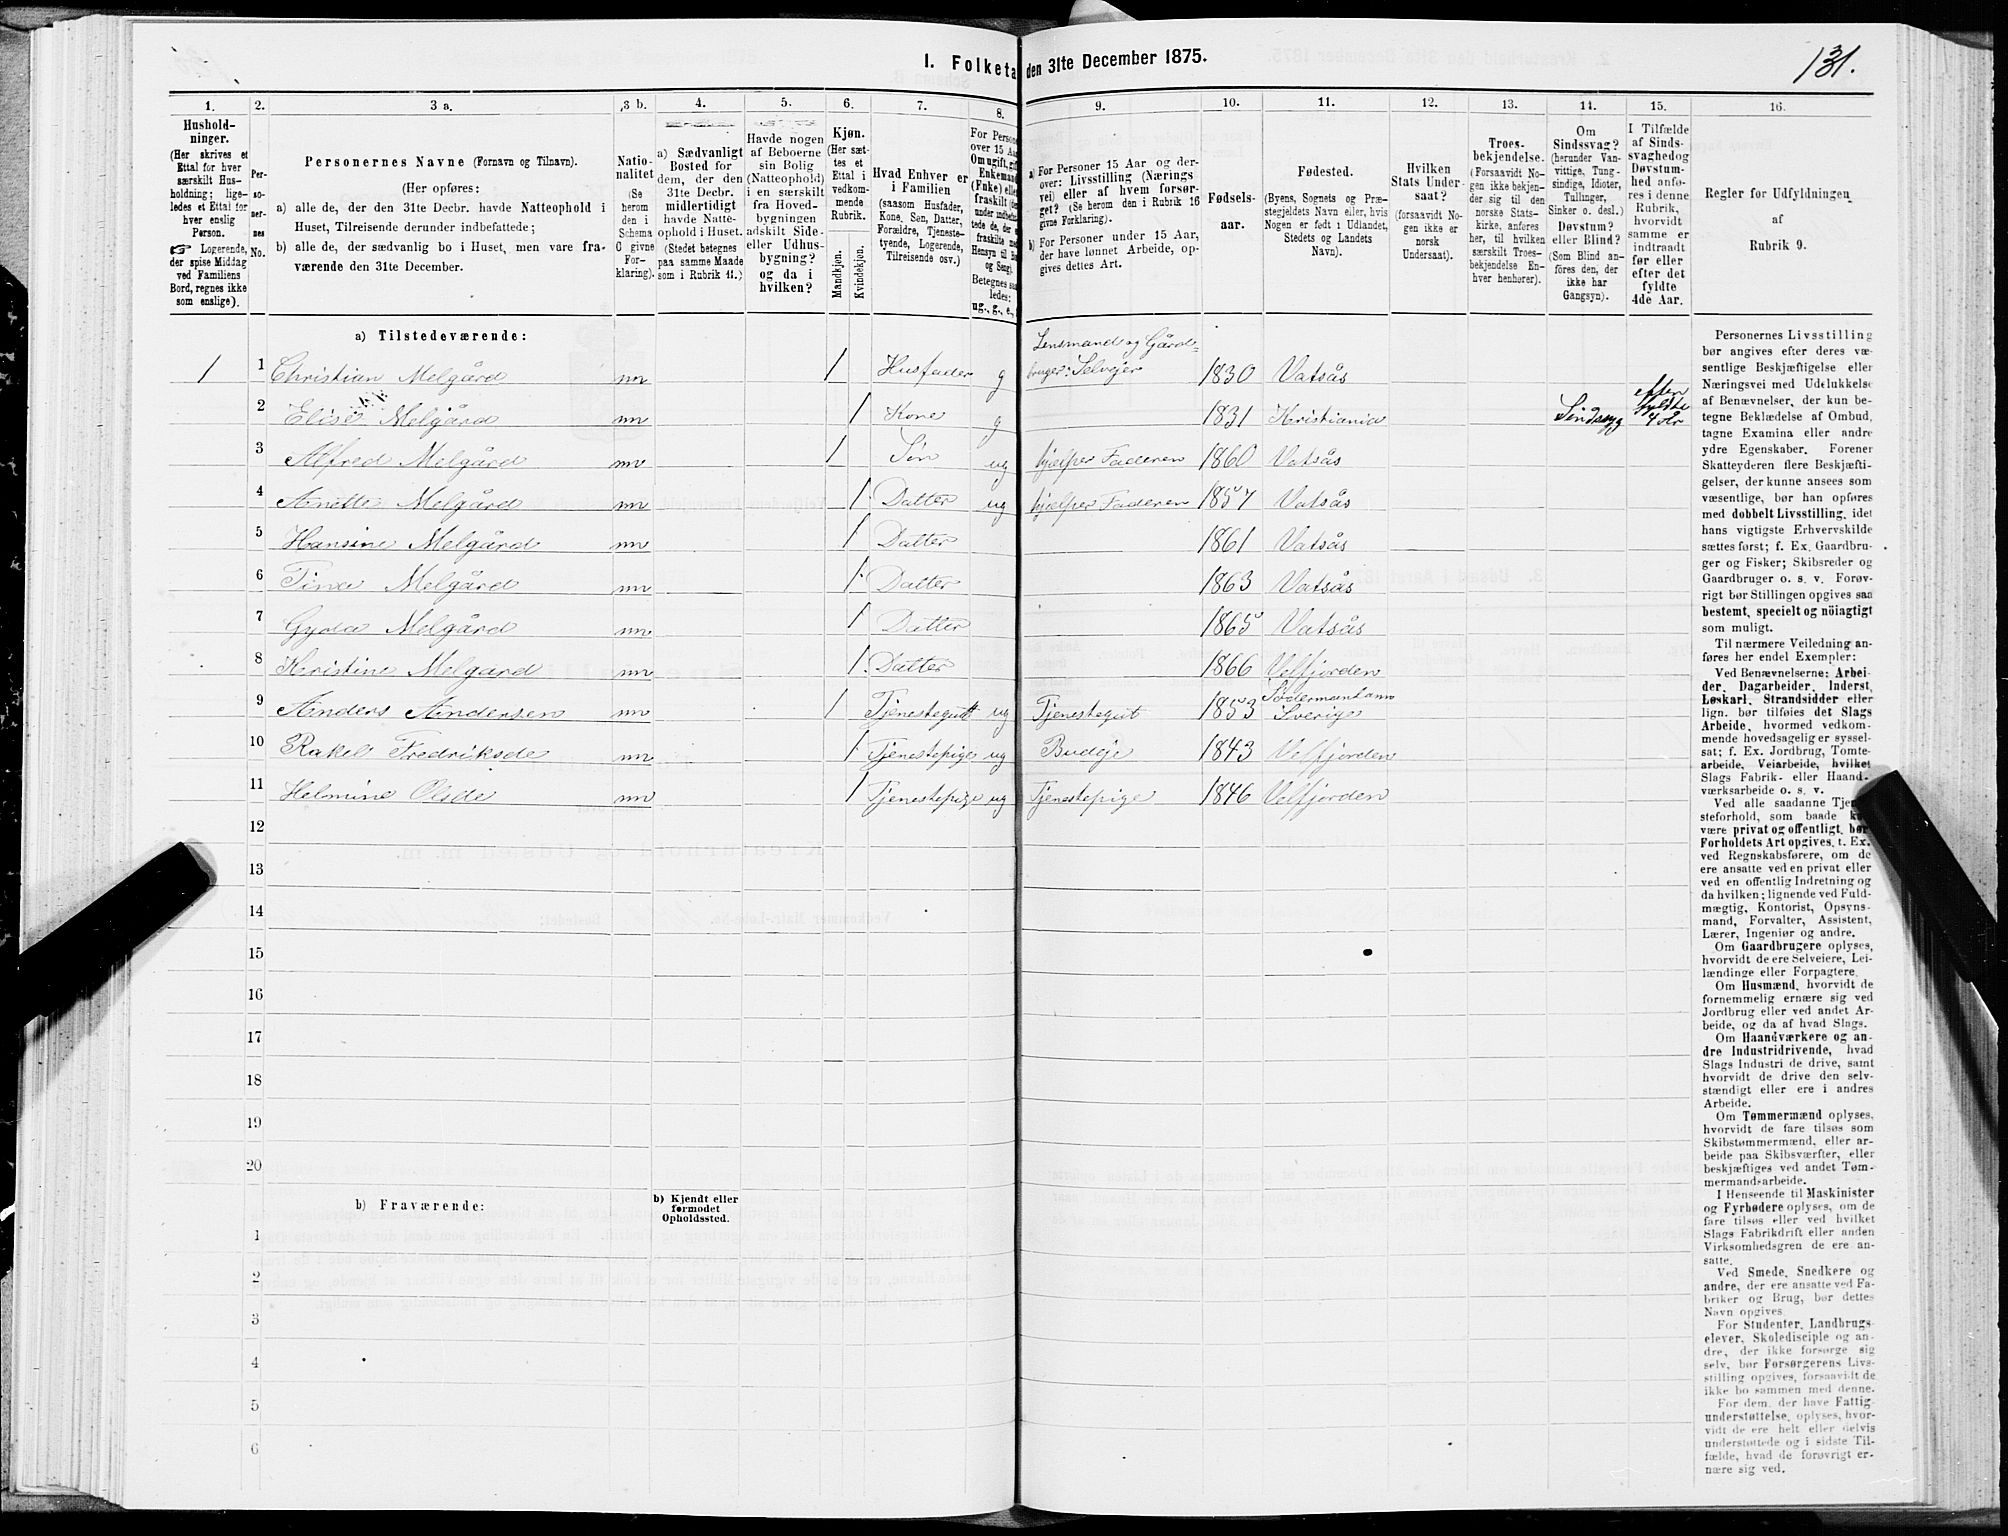 I. Folketa den 31te December 1875.
131.
1.
Hushold-
ninger.
(Her skrives et
Ettal for hver
særskilt Hus-
holdning; lige-
ledes et Ettal for
hver enslig
Person.
☞ Logerende,
der spise Middag
ved Familiens
Bord, regnes ikke
som enslige).
2.
Per-
so-
ner-
nes
No.
3 a.
Personernes Navne (Fornavn og Tilnavn).
(Her opføres:
a) alle de, der den 31te Decbr. havde Natteophold i
Huset, Tilreisende derunder indbefattede;
b) alle de, der sædvanlig bo i Huset, men vare fra-
værende den 31te December.
3 b.
Natio-
nalitet
(Se
herom
den i
Schema
C givne
For-
klaring).
4.
a) Sædvanligt
Bosted for
dem, der den
31te Decbr.
midlertidigt
havde Natte-
ophold i Huset.
(Stedet betegnes
paa samme Maade
som i Rubrik 11.)
5.
Havde nogen
af Beboerne
sin Bolig
(Natteophold)
i en særskilt
fra Hoved-
bygningen
adskilt Side-
eller Udhus-
bygning?
og da i
hvilken?
6.
Kjøn.
(Her sæt-
tes et
Ettal i
vedkom-
mende
Rubrik.
Mandkjøn.
Kvindekjøn.
7.
Hvad Enhver er
i Familien
(saasom Husfader,
Kone, Søn, Datter,
Forældre, Tjeneste-
tyende, Logerende,
Tilreisende osv.)
8.
For Person
over 15 Aa
Om ugift, gif
Enkeman
(Fnke) elle
fraskilt (de
under indbefat
tede de, der e
fraskilte me
Hensyn til B
og Seng).
Betegnes saa
ledes:
ug., g., e.,
9.
a) For Personer 15 Aar og der-
over: Livsstilling (Nærings
vei) eller af hvem forsør-
get? (Se herom den i Rubrik 16
givne Forklaring).
b) For Personer under 15 Aar,
der have lønnet Arbeide, op-
gives dettes Art.
10.
Fødsels-
aar.
11.
Fødested.
(Byens, Sognets og Præ-
stegjeldets Navn eller, hvis
Nogen er født i Udlandet,
Stedets og Landets
Navn).
12.
Hvilken
Stats Under-
saat?
(forsaavidt No-
gen ikke er
norsk
Undersaat).
13.
Troes-
bekjendelse.
(Forsaavidt No-
gen ikke bekjen-
der sig til den
norske Stats-
kirke, anføres
her, til hvilken
særskilt Troes-
bekjendelse En-
hver henhører).
14.
Om
Sindssvag?
(herunder Van-
vittige, Tung-
sindige, Idioter,
Tullinger,
Sinker o. desl.)
Døvstum?
eller Blind?
(Som Blind an-
føres den, der
ikke har
Gangsyn).
15.
I Tilfælde
af Sinds-
svaghed og
Døvstum-
hed anfø-
res i denne
Rubrik,
hvorvidt
samme er
indtraadt
før eller
efter det
fyldte
4de Aar.
16.
Regler for Udfyldningen
af
Rubrik 9.
a) Tilstedeværende:
Lensmand og Gård-
1 1 Christian Melgård nn 1 Husfader g bruger: Selvejer 1830 Vatsås
2 Elise Melgård nn 1 Kone g 1831 Kristiania Sindssyg efter fyldte 4 År
3 Alfred Melgård nn 1 Søn ug hjælper Faderen 1860 Vatsås
4 Anette Melgård nn 1 Datter ug hjælper Faderen 1857 Vatsås
5 Hansine Melgård nn 1 Datter 1861 Vatsås
6 Tina Melgård nn 1 Datter 1863 Vatsås
7 Gyda Melgård nn 1 Datter 1865 Vatsås
8 Kristine Melgård nn 1 Datter 1866 Velfjorden
9 Anders Andersen nn 1 Tjenestegut ug Tjenestegut 1853 Sverige
10 Rakel Fredriksde nn 1 Tjenestepige ug Budeje 1843 Velfjorden
11 Helmine Olsde nn 1 Tjenestepige ug Tjenestepige 1846 Velfjorden
12
13
14
15
16
17
18
19
20
b) Fraværende:
b) Kjendt eller
formodet
Opholdssted.
1
2
3
4
5
6
Personernes Livsstilling
bør angives efter deres væ-
sentlige Beskjæftigelse eller
Næringsvei med Udelukkelse
af Benævnelser, der kun be-
tegne Beklædelse af Ombud,
tagne Examina eller andre
ydre Egenskaber. Forener
Skatteyderen flere Beskjæfti-
gelser, der kunne ansees som
væsentlige, bør han opføres
med dobbelt Livsstilling, idet
hans vigtigste Erhvervskilde
sættes først; f. Ex. Gaardbru-
ger og Fisker; Skibsreder og
Gaardbruger o. s. v. Forøv-
rigt bør Stillingen opgives saa
bestemt, specielt og nöiagtigt
som muligt.
Til nærmere Veiledning an-
føres her endel Exempler:
Ved Benævnelserne: Arbei-
der, Dagarbeider, Inderst,
Løskarl, Strandsidder eller
lign. bør tilføies det Slags
Arbeide, hvormed vedkom-
mende hovedsagelig er syssel-
sat; f. Ex. Jordbrug, Tomte-
arbeide, Veiarbeide, hvilket
Slags Fabrik- eller Haand-
værksarbeide o. s. v.
Ved alle saadanne Tjene-
steforhold, som baade kunne
være privat og offentligt, bør
Forholdets Art opgives, t. Ex.
ved Regnskabsførere, om de
ere ansatte ved en privat eller
ved en offentlig Indretning og
da hvilken; lignende ved Fuld-
mægtig, Kontorist, Opsyns-
mand, Forvalter, Assistent,
Lærer, Ingeniør og andre.
Om Gaardbrugere oplyses,
hvorvidt de ere Selveiere, Lei-
lændinge eller Forpagtere.
Om Husmænd, hvorvidt de
fornemmelig ernære sig ved
Jordbrug eller ved andet Ar-
beide, og da af hvad Slags.
Om Haandværkere og an-
dre Industridrivende, hvad
Slags Industri de drive, samt
hvorvidt de drive den selv-
stændigt eller ere i andres
Arbeide.
Om Tømmermænd oplyses,
hvorvidt de fare tilsøs som
Skibstømmermænd, eller ar-
beide paa Skibsværfter, eller
beskjæftiges ved andet Tøm-
mermandsarbeide.
I Henseende til Maskinister
og Fyrbødere oplyses, om de
fare tilsøs eller ved hvilket
Slags Fabrikdrift eller anden
Virksomhedsgren de ere an-
satte.
Ved Smede, Snedkere og
andre, der ere ansatte ved Fa-
briker og Brug, bør dettes
Navn opgives.
For Studenter, Landbrugs-
elever, Skoledisciple og an-
dre, der ikke forsørge sig
selv, bør Forsørgerens Livs-
stilling opgives, forsaavidt de
ikke bo sammen med denne.
For dem, der have Fattig-
understøttelse, oplyses, hvor-
vidt de ere helt eller delvis
understøttede og i sidste Til-
fælde, hvad de forøvrigt er-
nære sig ved.